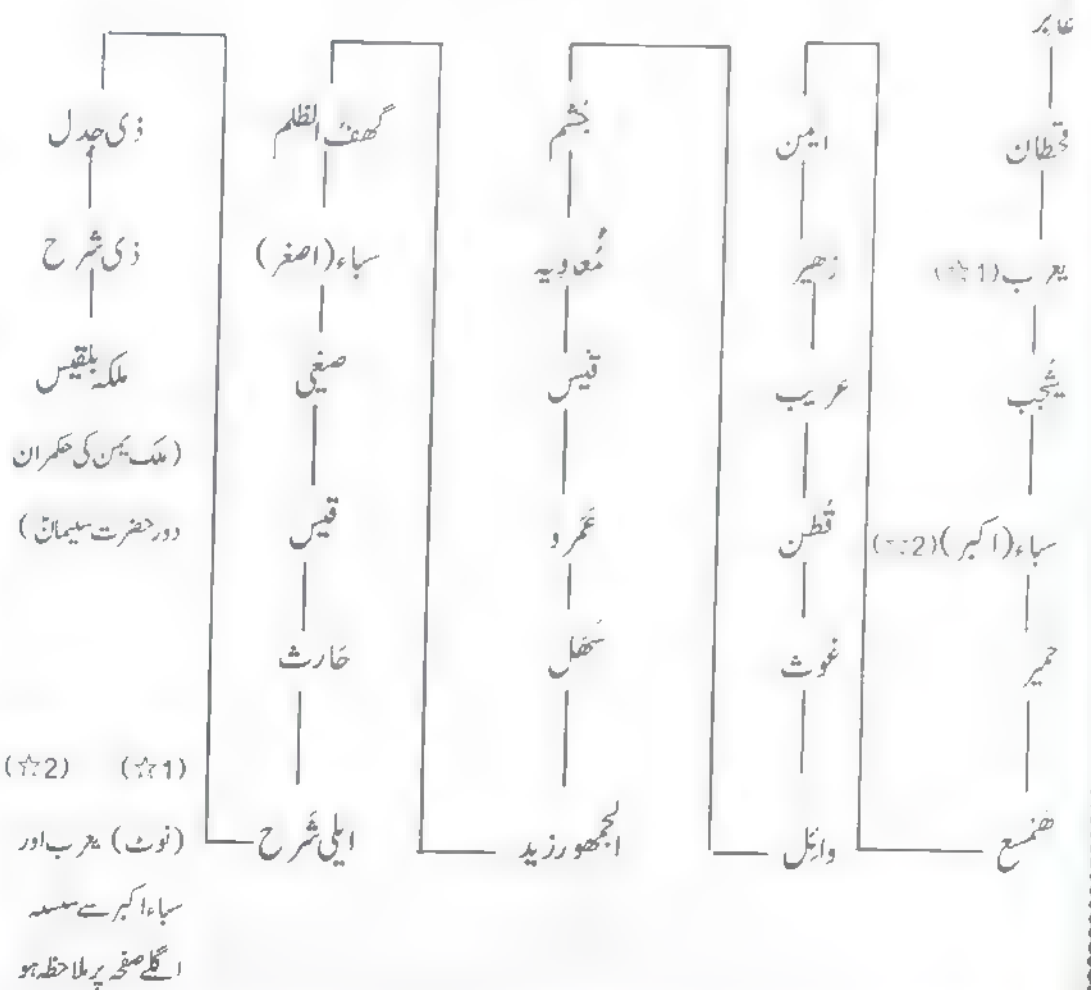 عابر
قحطان
یعرب (☆1)
یشجب
سباء (اکبر) (☆2)
حمیر
ھمسع
ایمن
زھیر
عریب
قطن
غوث
وائل
جُشم
مُعاویہ
قیس
عَمرو
سَھل
الجمھورزید
گھفُ الظلم
سباء (اصغر)
صیفی
قیس
حَارث
ایلی شَرح
ذی جدل
ذی شرح
ملکہ بلقیس
(ملک یمن کی حکمران
دور حضرت سلیمانؑ)
(☆1) (☆2)
(نوٹ) یعرب اور
سباء اکبر سے سلسلہ
اگلے صفحہ پر ملاحظہ ہو